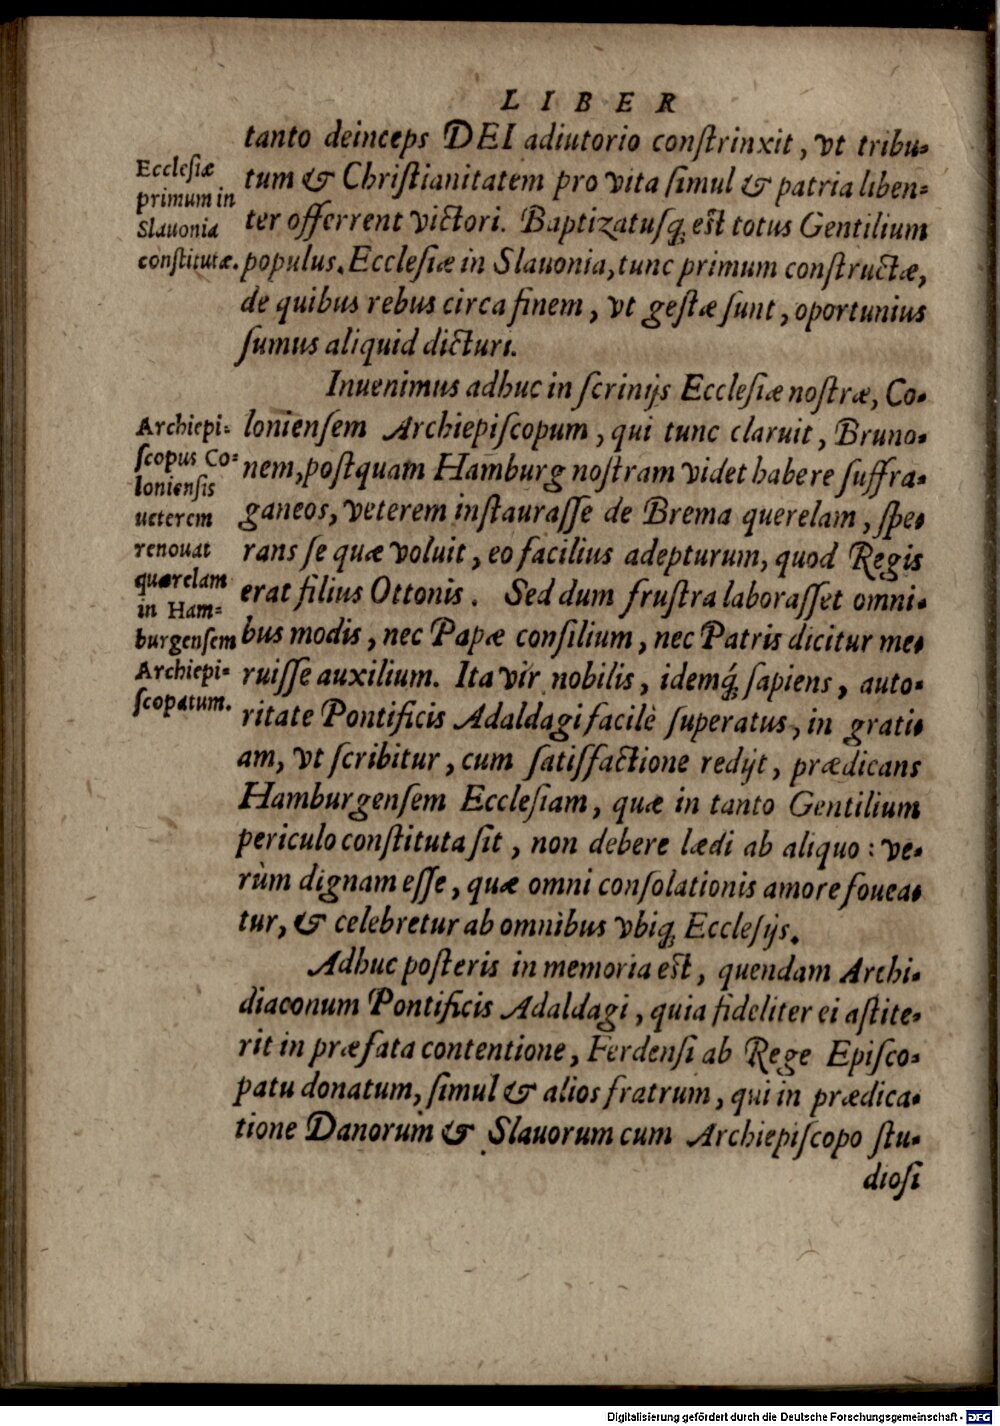 LIBER
tanto deinceps DEI adiutorio conſtrinxit, vt tribu-
tum & Chriſtianitatem pro vita ſimul & patria liben-
ter offerrent victori. Baptizatuſq́; eſt totus Gentilium
populus. Eccleſiæ in Slauonia, tunc primum conſtructæ,
de quibus rebus circa finem, vt geſtæ ſunt, oportunius
ſumus aliquid dicturi.
Eccleſiæ
primum in
Slauonia
conſtitutæ.
Inuenimus adhuc in ſcrinijs Eccleſiæ noſtræ, Co-
lonienſem Archiepiſcopum, qui tunc claruit, Bruno-
nem, poſtquam Hamburg noſtram videt habere ſuffra-
ganeos, veterem inſtauraſſe de Brema querelam, ſpe-
rans ſe quæ voluit, eo facilius adepturum, quod Regis
erat filius Ottonis. Sed dum fruſtra laboraſſet omni-
bus modis, nec Papæ conſilium, nec Patris dicitur me-
ruiſſe auxilium. Ita vir nobilis, idemq́; ſapiens, auto-
ritate Pontificis Adaldagi facilè ſuperatus, in grati-
am, vt ſcribitur, cum ſatiſfactione redijt, prædicans
Hamburgenſem Eccleſiam, quæ in tanto Gentilium
periculo conſtituta ſit, non debere lædi ab aliquo: ve-
rùm dignam eſſe, quæ omni conſolationis amore fouea-
tur, & celebretur ab omnibus vbiq; Eccleſijs.
Archiepi-
ſcopus Co-
lonienſis
ueterem
renouat
quærelam
in Ham-
burgenſem
Archiepi-
ſcopatum.
Adhuc poſteris in memoria eſt, quendam Archi-
diaconum Pontificis Adaldagi, quia fideliter ei aſtite-
rit in præfata contentione, Ferdenſi ab Rege Epiſco-
patu donatum, ſimul & alios fratrum, qui in prædica-
tione Danorum & Slauorum cum Archiepiſcopo ſtu-
dioſi
Digitalisierung gefördert durch die Deutsche Forschungsgemeinschaft - DFG